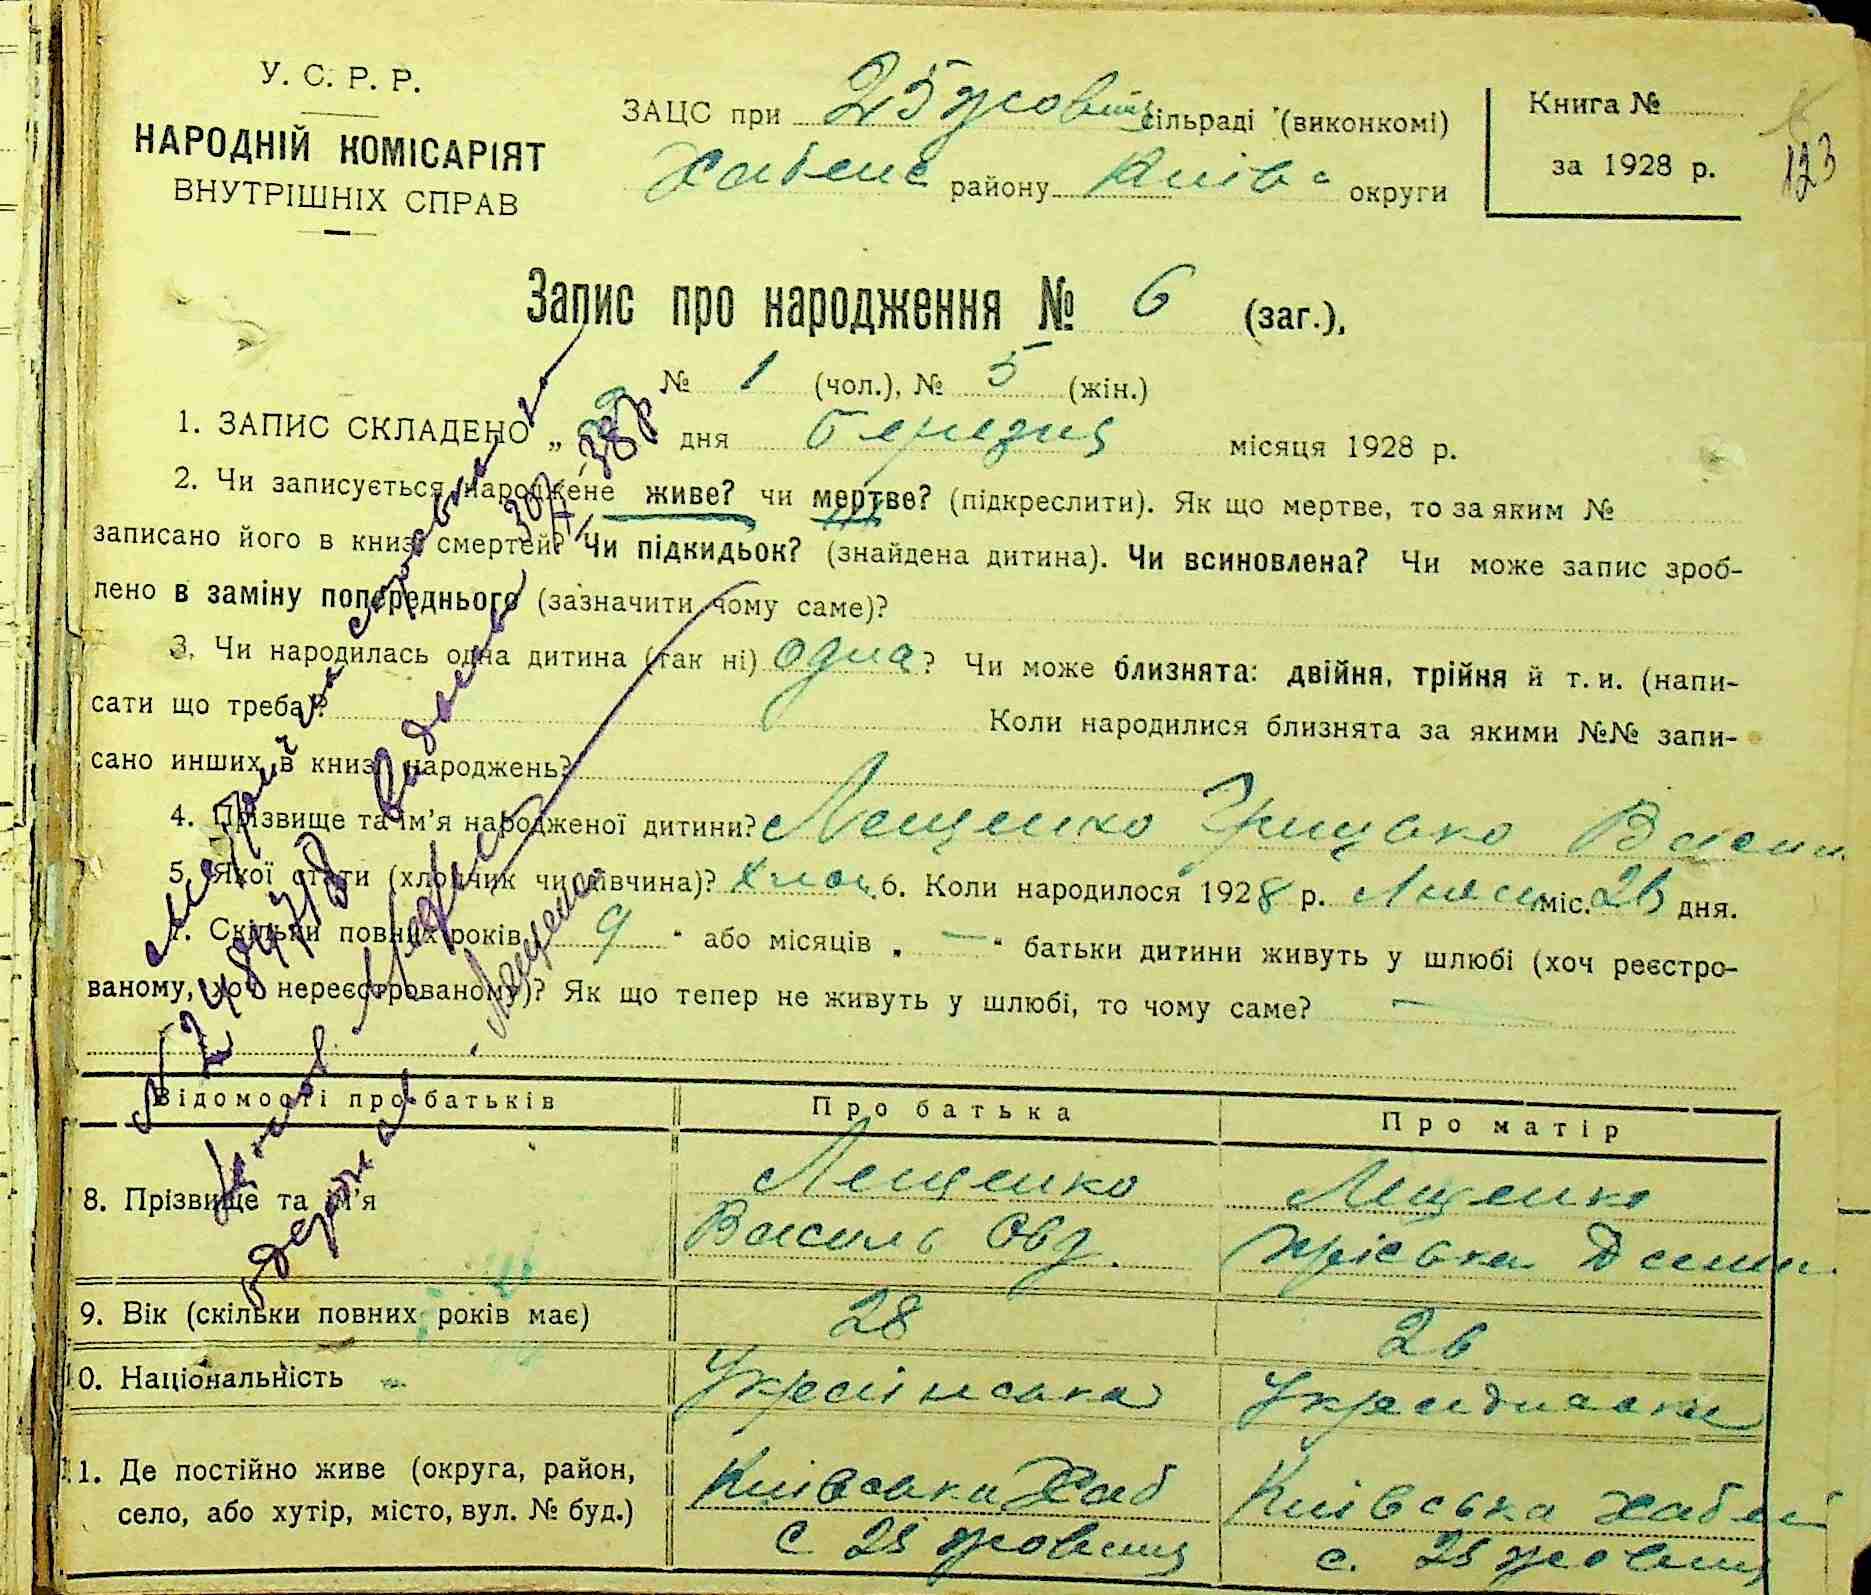 У. С. Р. Р.
НАРОДНІЙ КОМІСАРІЯТ
ВНУТРІШНІХ СПРАВ
ЗАЦС при 25 жовтня сільраді (виконкомі)
Хабенс району Київс округи
Книга №
за 1928 р.
123
Запис про народження № 6 (заг.),
№ 1 (чол.), № 5 (жін.)
1. ЗАПИС СКЛАДЕНО „ дня березня місяця 1928 р.
2. Чи записується народжене живе? чи мертве? (підкреслити). Як що мертве, то за яким №
записано його в книзі смертей? Чи підкидьок? (знайдена дитина). Чи всиновлена? Чи може запис зроб-
лено в заміну попереднього (зазначити чому саме)?
3. Чи народилась одна дитина (так ні) одна? Чи може близнята: двійня, трійня й т. и. (напи-
сати що треба)?
Коли народилися близнята за якими №№ запи-
сано инших в книзі народжень?
4. Прізвище та ім'я народженої дитини? Лещенко Грицько Васил
5. Якої стати (хлопчик чи дівчина)? хлоп. 6. Коли народилося 1928 р. міс. дня.
7. Скільки повних років 9 " або місяців „ — " батьки дитини живуть у шлюбі (хоч реєстро-
ваному, хоч нереєстрованому)? Як що тепер не живуть у шлюбі, то чому саме? —
Відомості про батьків
Про батька
Про матір
8. Прізвище та ім'я
Лещенко
Василь Овд.
Лещенко
Пріська Деми
9. Вік (скільки повних років має)
28
26
10. Національність
Українська
Українська
11. Де постійно живе (округа, район,
село, або хутір, місто, вул. № буд.)
Київська Хаб
с. 25 жовтня
Київська Хабен
с. 25 жовтня
Лещенко